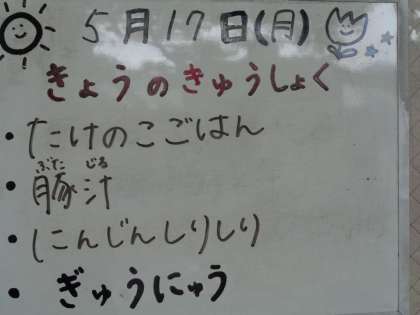 5月17日(月)
きょうのきゅうしょく
・たけのこごはん
ぶた じる
・豚汁
・にんじんしりしり
・ぎゅうにゅう